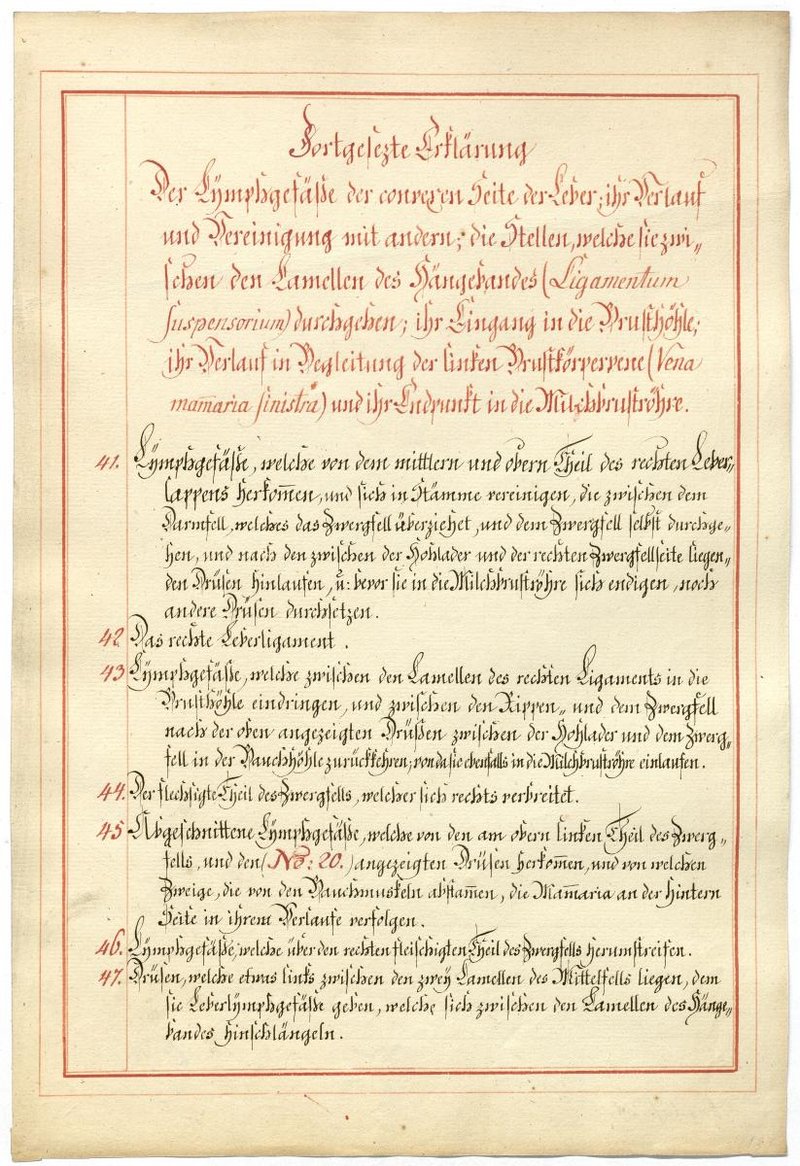 Fortgesezte Erklärung
Der Lÿmphgefäße der convexen Seite der Leber; ihr Verlauf
und Vereinigung mit andern; die Stellen, welche sie zwi„
schen den Lamellen des Hängebandes (Ligamentum
suspensorium) durchgehen; ihr Eingang in die Brusthöhle;
ihr Verlauf in Begleitung der linken Brustkörpervene (Vena
mam̅aria sinistra) und ihr Endpunkt in die Milchbruströhre.
41. Lÿmphgefäße, welche von dem mittlern und obern Theil des rechten Leber„
lappens herkom̅en, und sich in Stämme vereinigen, die zwischen dem
Darmfell, welches das Zwergfell überziehet, und dem Zwergfell selbst durchge„
hen, und nach den zwischen der Hohlader und der rechten Zwergfellseite liegen„
den Drüsen hinlaufen, u: bevor sie in die Milchbruströhre sich endigen, noch
andere Drüsen durchsetzen.
42 Das rechte Leberligament.
43 Lÿmphgefäße, welche zwischen den Lamellen des rechten Ligaments in die
Brusthöhle eindringen, und zwischen den Rippen„ und dem Zwergfell
nach der oben angezeigten Drüßen zwischen der Hohlader und dem Zwerg„
fell in der Bauchhöhle zurückkehren, von da sie ebenfalls in die Milchbruströhre einlaufen.
44. Der flechsigte Theil des Zwergfells, welcher sich rechts verbreitet.
45 Abgeschnittene Lÿmphgefäße, welche von den am obern linken Theil des Zwerg„
fells, und den (No: 20.) angezeigten Drüsen herkom̅en, und von welchen
Zweige, die von den Bauchmuskeln abstam̅en, die Mam̅aria an der hintern
Seite in ihrem Verlaufe verfolgen.
46. Lÿmphgefäße, welche über den rechten fleischigten Theil des Zwergfells herumstreifen.
47. Drüsen, welche etwas links zwischen den zweÿ Lamellen des Mittelfells liegen, dem
sie Leberlÿmphgefäße geben, welche sich zwischen den Lamellen des Hänge„
bandes hinschlängeln.